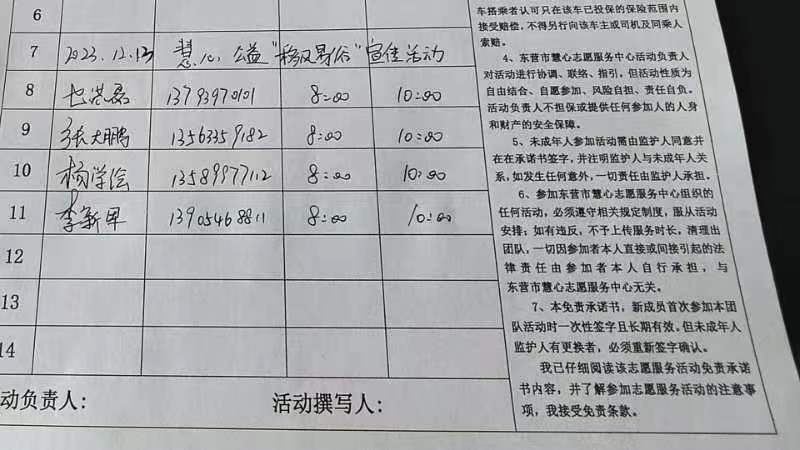 6
7 2023.12.13 慧心公益“移风易俗”宣传活动
8 13793970101 8:00 10:00
9 张大鹏 13563359182 8:00 10:00
10 杨学绘 13589977112 8:00 10:00
11 李新军 13905468811 8:00 10:00
12
13
14
动负责人: 活动撰写人:
车搭乘者认可只在该车已投保的保险范围内
接受赔偿,不得另行向该车主或司机及同乘人
索赔。
4、东营市慧心志愿服务中心活动负责人
对活动进行协调、联络、指引,但活动性质为
自由结合、自愿参加、风险自担、责任自负。
活动负责人不担保或提供任何参加人的人身
和财产的安全保障。
5、未成年人参加活动需由监护人同意并
在在承诺书签字,并注明监护人与未成年人关
系,如发生任何意外,一切责任由监护人承担。
6、参加东营市慧心志愿服务中心组织的
任何活动,必须遵守相关规定制度,服从活动
安排;如有违反,不予上传服务时长,清理出
团队,一切因参加者本人直接或间接引起的法
律责任由参加者本人自行承担,与
东营市慧心志愿服务中心无关。
7、本免责承诺书,新成员首次参加本团
队活动时一次性签字且长期有效。但未成年人
监护人有更换者,必须重新签字确认。
我已仔细阅读该志愿服务活动免责承诺
书内容,并了解参加志愿服务活动的注意事
项,我接受免责条款。